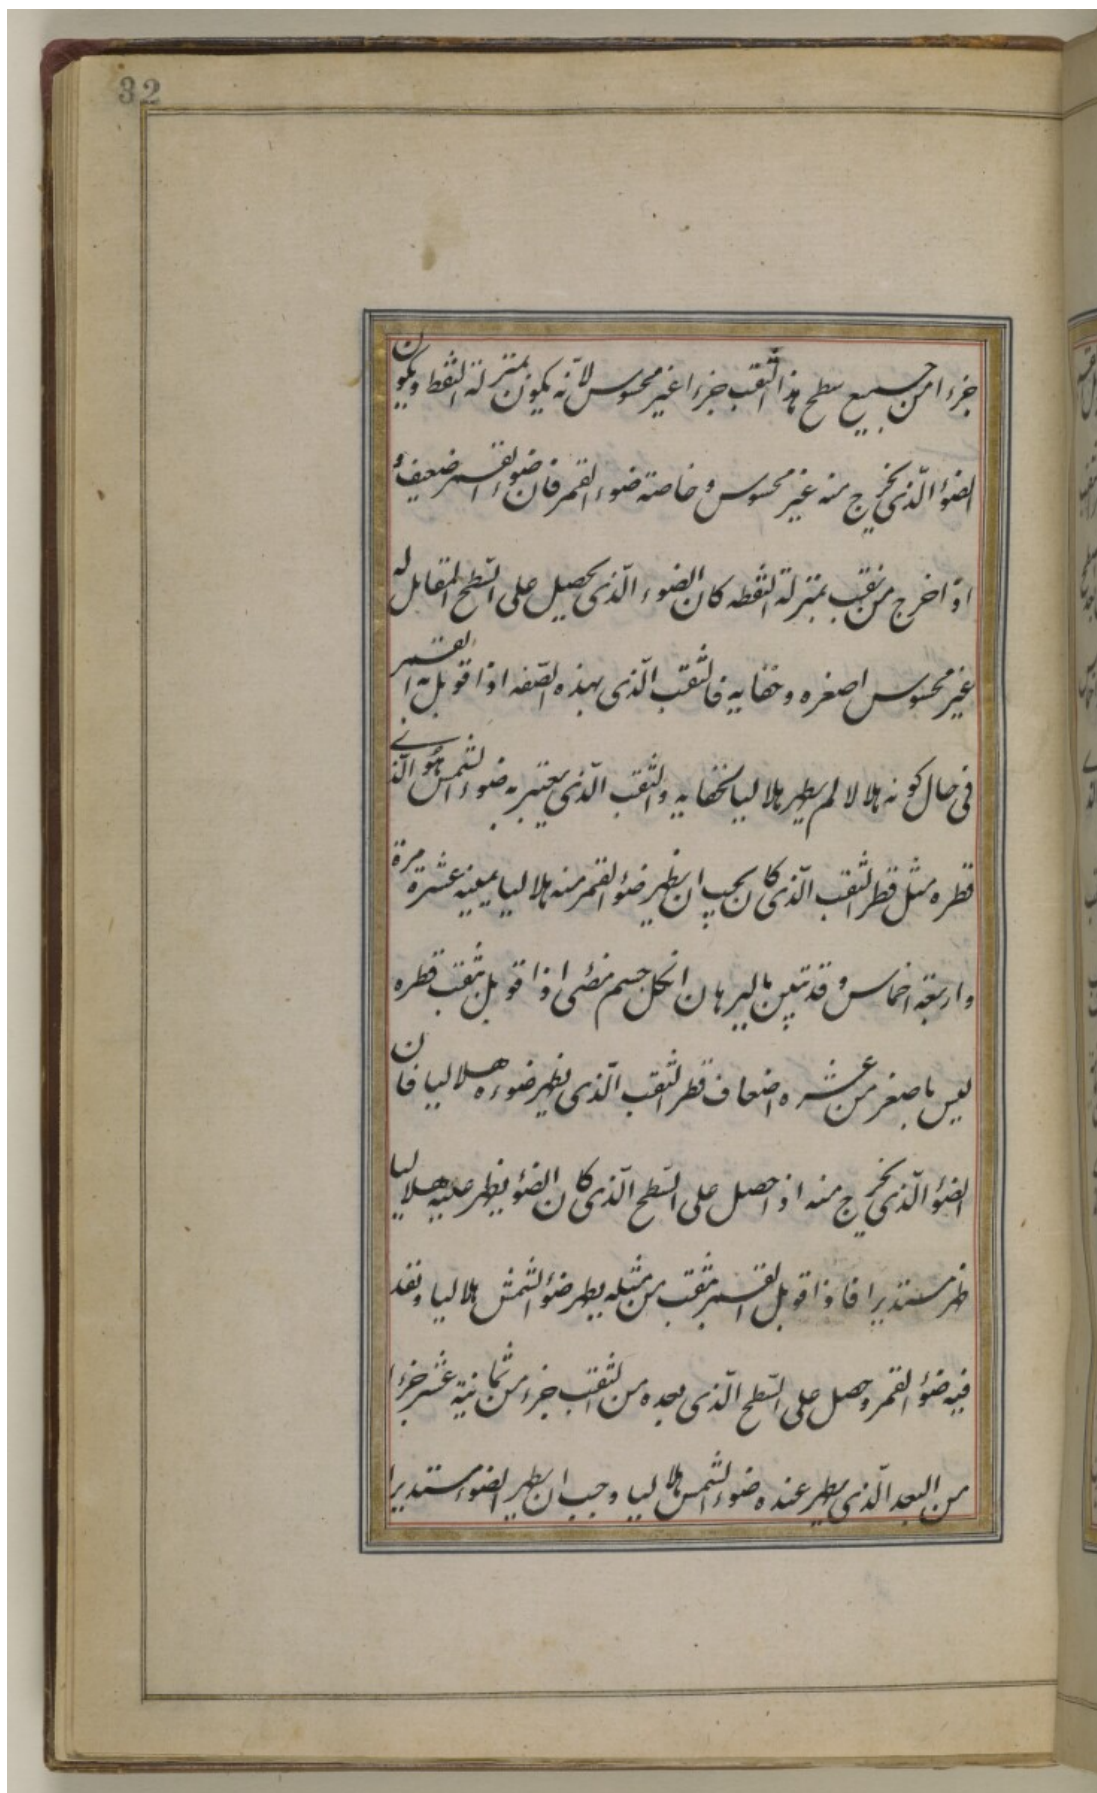 32
جزءا من جميع سطح هذا الثقب جزءا غير محسوس لانّه يكون بمنزلة النقط ويكون
الضوٴ الّذى يخرج منه غير محسوس و خاصة ضوء القمر فان ضوء القمر ضعيف و
اذا خرج من ثقب بمنزلة النقطه كان الضوء الّذى يحصل على السّطح المقابل له
غير محسوس اصغره و خفايه فالثقب الّذى بهذه الصّفه اذا قوبل به القمر
فى حال كونه هلالا لم يظهر هلاليا لخفايه والثقب الّذى يعتبر به ضوء الشمس هو الّذى
قطره مثل قطر الثقب الّذى كان يجب ان يظهر ضوٴ القمر منه هلاليا بمية عشرة مرة
و اربعة اخماس و قد تبين بالبرهان ان كل جسم مضئ اذا قوبل بثقب قطره
ليس باصغر من عشره اضعاف قطر الثقب الّذى يظهر ضوءه هلاليا فان
الضوٴ الّذى يخرج منه اذا حصل على السّطح الّذى كان الضوٴ يظهر عليه هلاليا
ظهر مستديرا فاذا قوبل القمر بثقب من مثله يظهر ضوٴ الشمس هلاليا و نفذ
فيه ضوٴ القمر و حصل على السّطح الّذى بعده من الثقب جزء من ثمانية عشر جزءا
من البعد الّذى يظهر عنده ضوء الشمس هلاليا وجب ان يظهر الضوء مستديرا